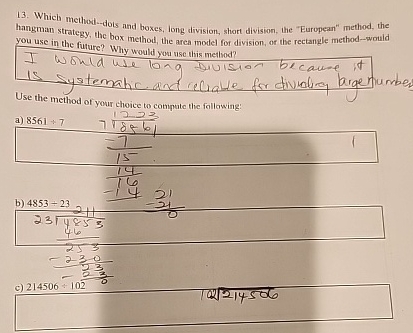 13. Which method--dots and boxes, long division, short division, the "European" method, the
hangman strategy, the box method, the area model for division, or the rectangle method--would
you use in the future? Why would you use this method?
I would use long Division because it
is systematic and reliable for dividing large numbers
Use the method of your choice to compute the following:
1223
a) 8561 ÷ 7 7 8561
7
15
14
16
-14
21
-21
0
b) 4853 ÷ 23
211
23 4853
46
253
-230
23
-23
0
c) 214506 ÷ 102 102 214506